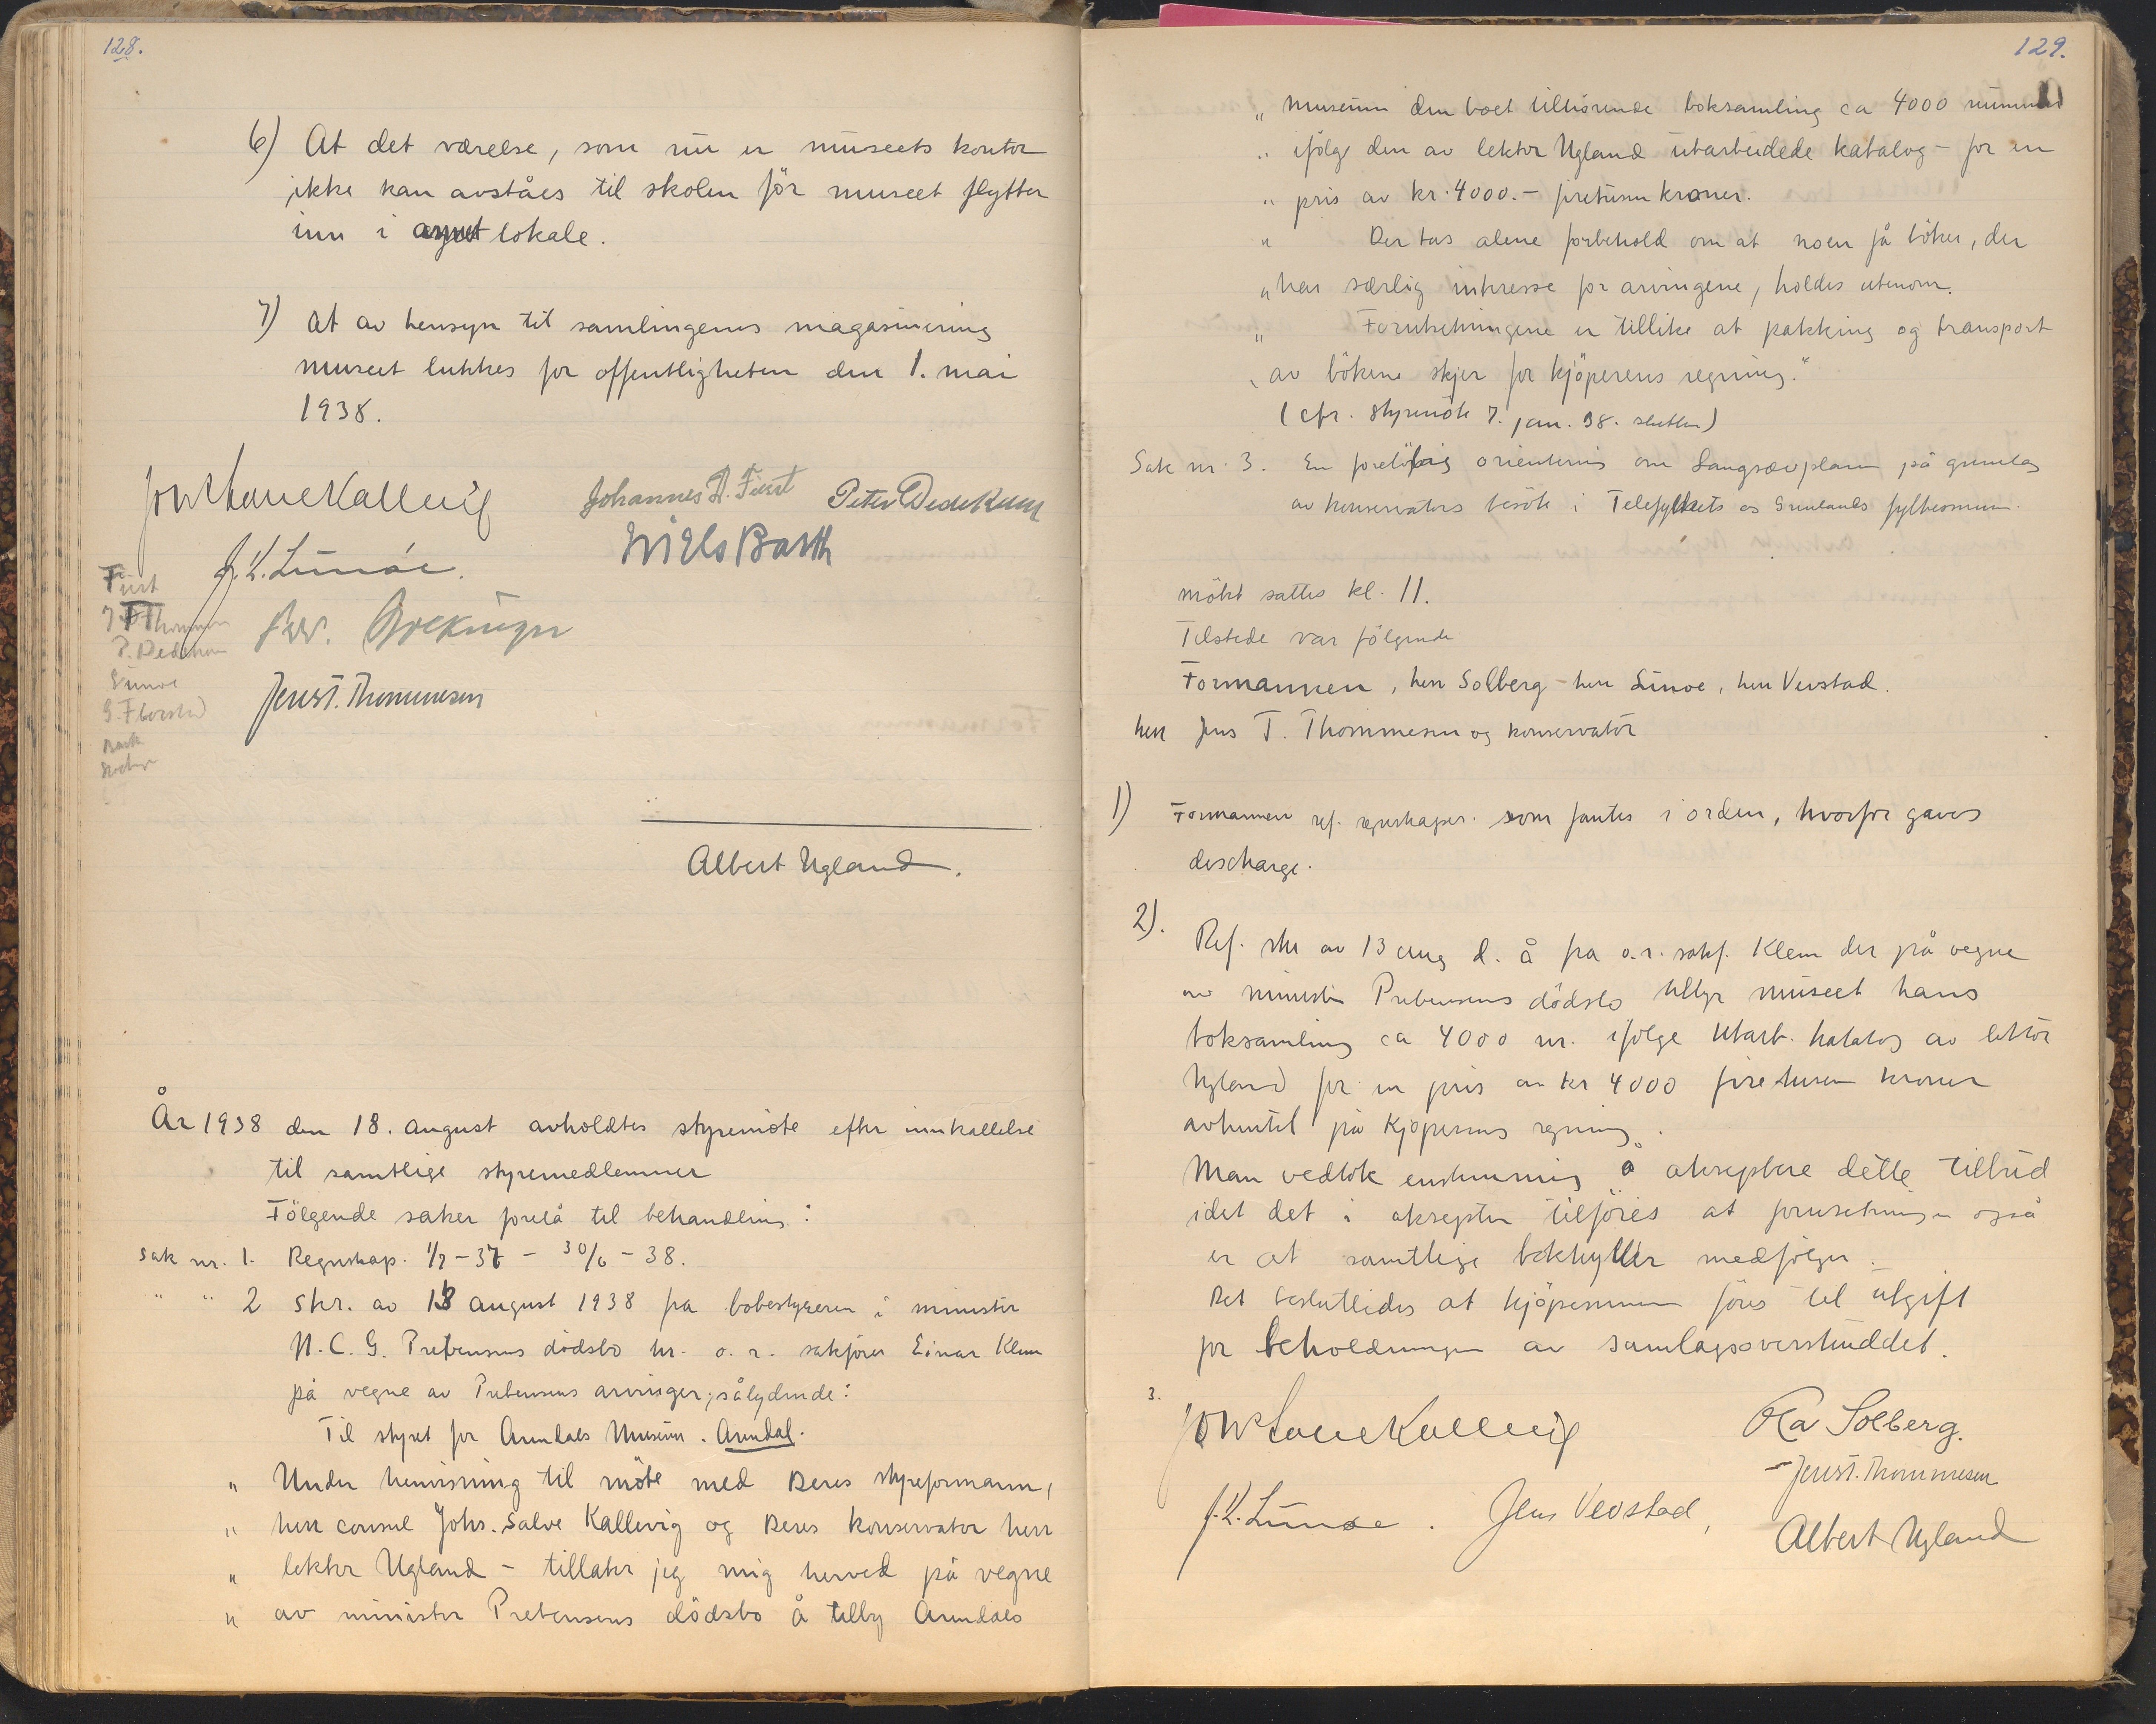 128.
6) At det værelse, som nu er museets kontor
ikke kan avståes til skolen för museet flytter
inn i annet lokale.
7) At av hensyn til samlingenes magasinering
museet lukkes for offentligheten den 1. mai
1938.
Johs Salve Kallevig
Johannes A. Fürst
Peter Dedekam
Niels Barth
J. K. Lunöe.
Jens T. Thommesen
Fürst
J T Thommesen
P. Dedekam
Lunoe
Barth
Albert Ugland.
År 1938 den 18. august avholdtes styremöte efter innkallelse
til samtlige styremedlemmer
Fölgende saker forelå til behandling:
Sak nr. 1. Regnskap. 1/7 - 37 - 30/6 - 38.
" " 2 Skr. av 13 august 1938 fra bobestyreren i minister
N. C. G. Prebensens dödsbo hr. o. r. sakförer Einar Klem
på vegne av Prebensens arvinger, sålydende:
Til styret for Arendals Museum. Arendal.
" Under henvisning til möte med Deres styreformann,
" herr consul Johs. Salve Kallevig og Deres konservator herr
" lektor Ugland - tillater jeg mig herved på vegne
" av minister Prebensens dödsbo å tilby Arendals
129.
" Museum den boet tilhörende boksamling ca 4000 nummer
" ifölge den av lektor Ugland utarbeidede katalog - for en
" pris av kr. 4000.- firetusen kroner.
" Der tas alene forbehold om at noen få böker, der
" har særlig interesse for arvingene, holdes utenom.
" Forutsetningene er tillike at pakking og transport
" av bökene skjer for kjöperens regning."
(cfr. styremöte 7. jan. 38. slutten)
Sak nr. 3. En forelöbig orientering om Langsæplanen på grunnlag
av konservators besök i Telefylkets og Grenlands fylkesmuseum.
Mötet sattes kl. 11.
Tilstede var fölgende
Formannen, herr Solberg - herr Lunoe, herr Vevstad.
herr Jens T. Thommesen og konservator
1) Formannen ref. regnskapet. som fantes i orden, hvorfor gaves
discharge.
2). Ref. skr av 13 aug d. å fra o. r. sakf. Klem der på vegne
av minister Prebensens dödsbo tilbyr museet hans
boksamling ca 4000 nr. ifölge utarb. katalog av lektor
Ugland for en pris av kr 4000 firetusen kroner
avhentet på kjöperens regning.
Man vedtok enstemmig å akseptere dette tilbud
idet det i aksepten tilföres at forutsetningen også
er at samtlige bokhyller medfölger.
Det besluttedes at kjöpesummen föres til utgift
for beholdningen av samlagsoverskuddet.
3.
Johs Salve Kallevig
Ola Solberg.
Jens T. Thommesen
J. K. Lunöe.
Jens Vevstad,
Albert Ugland